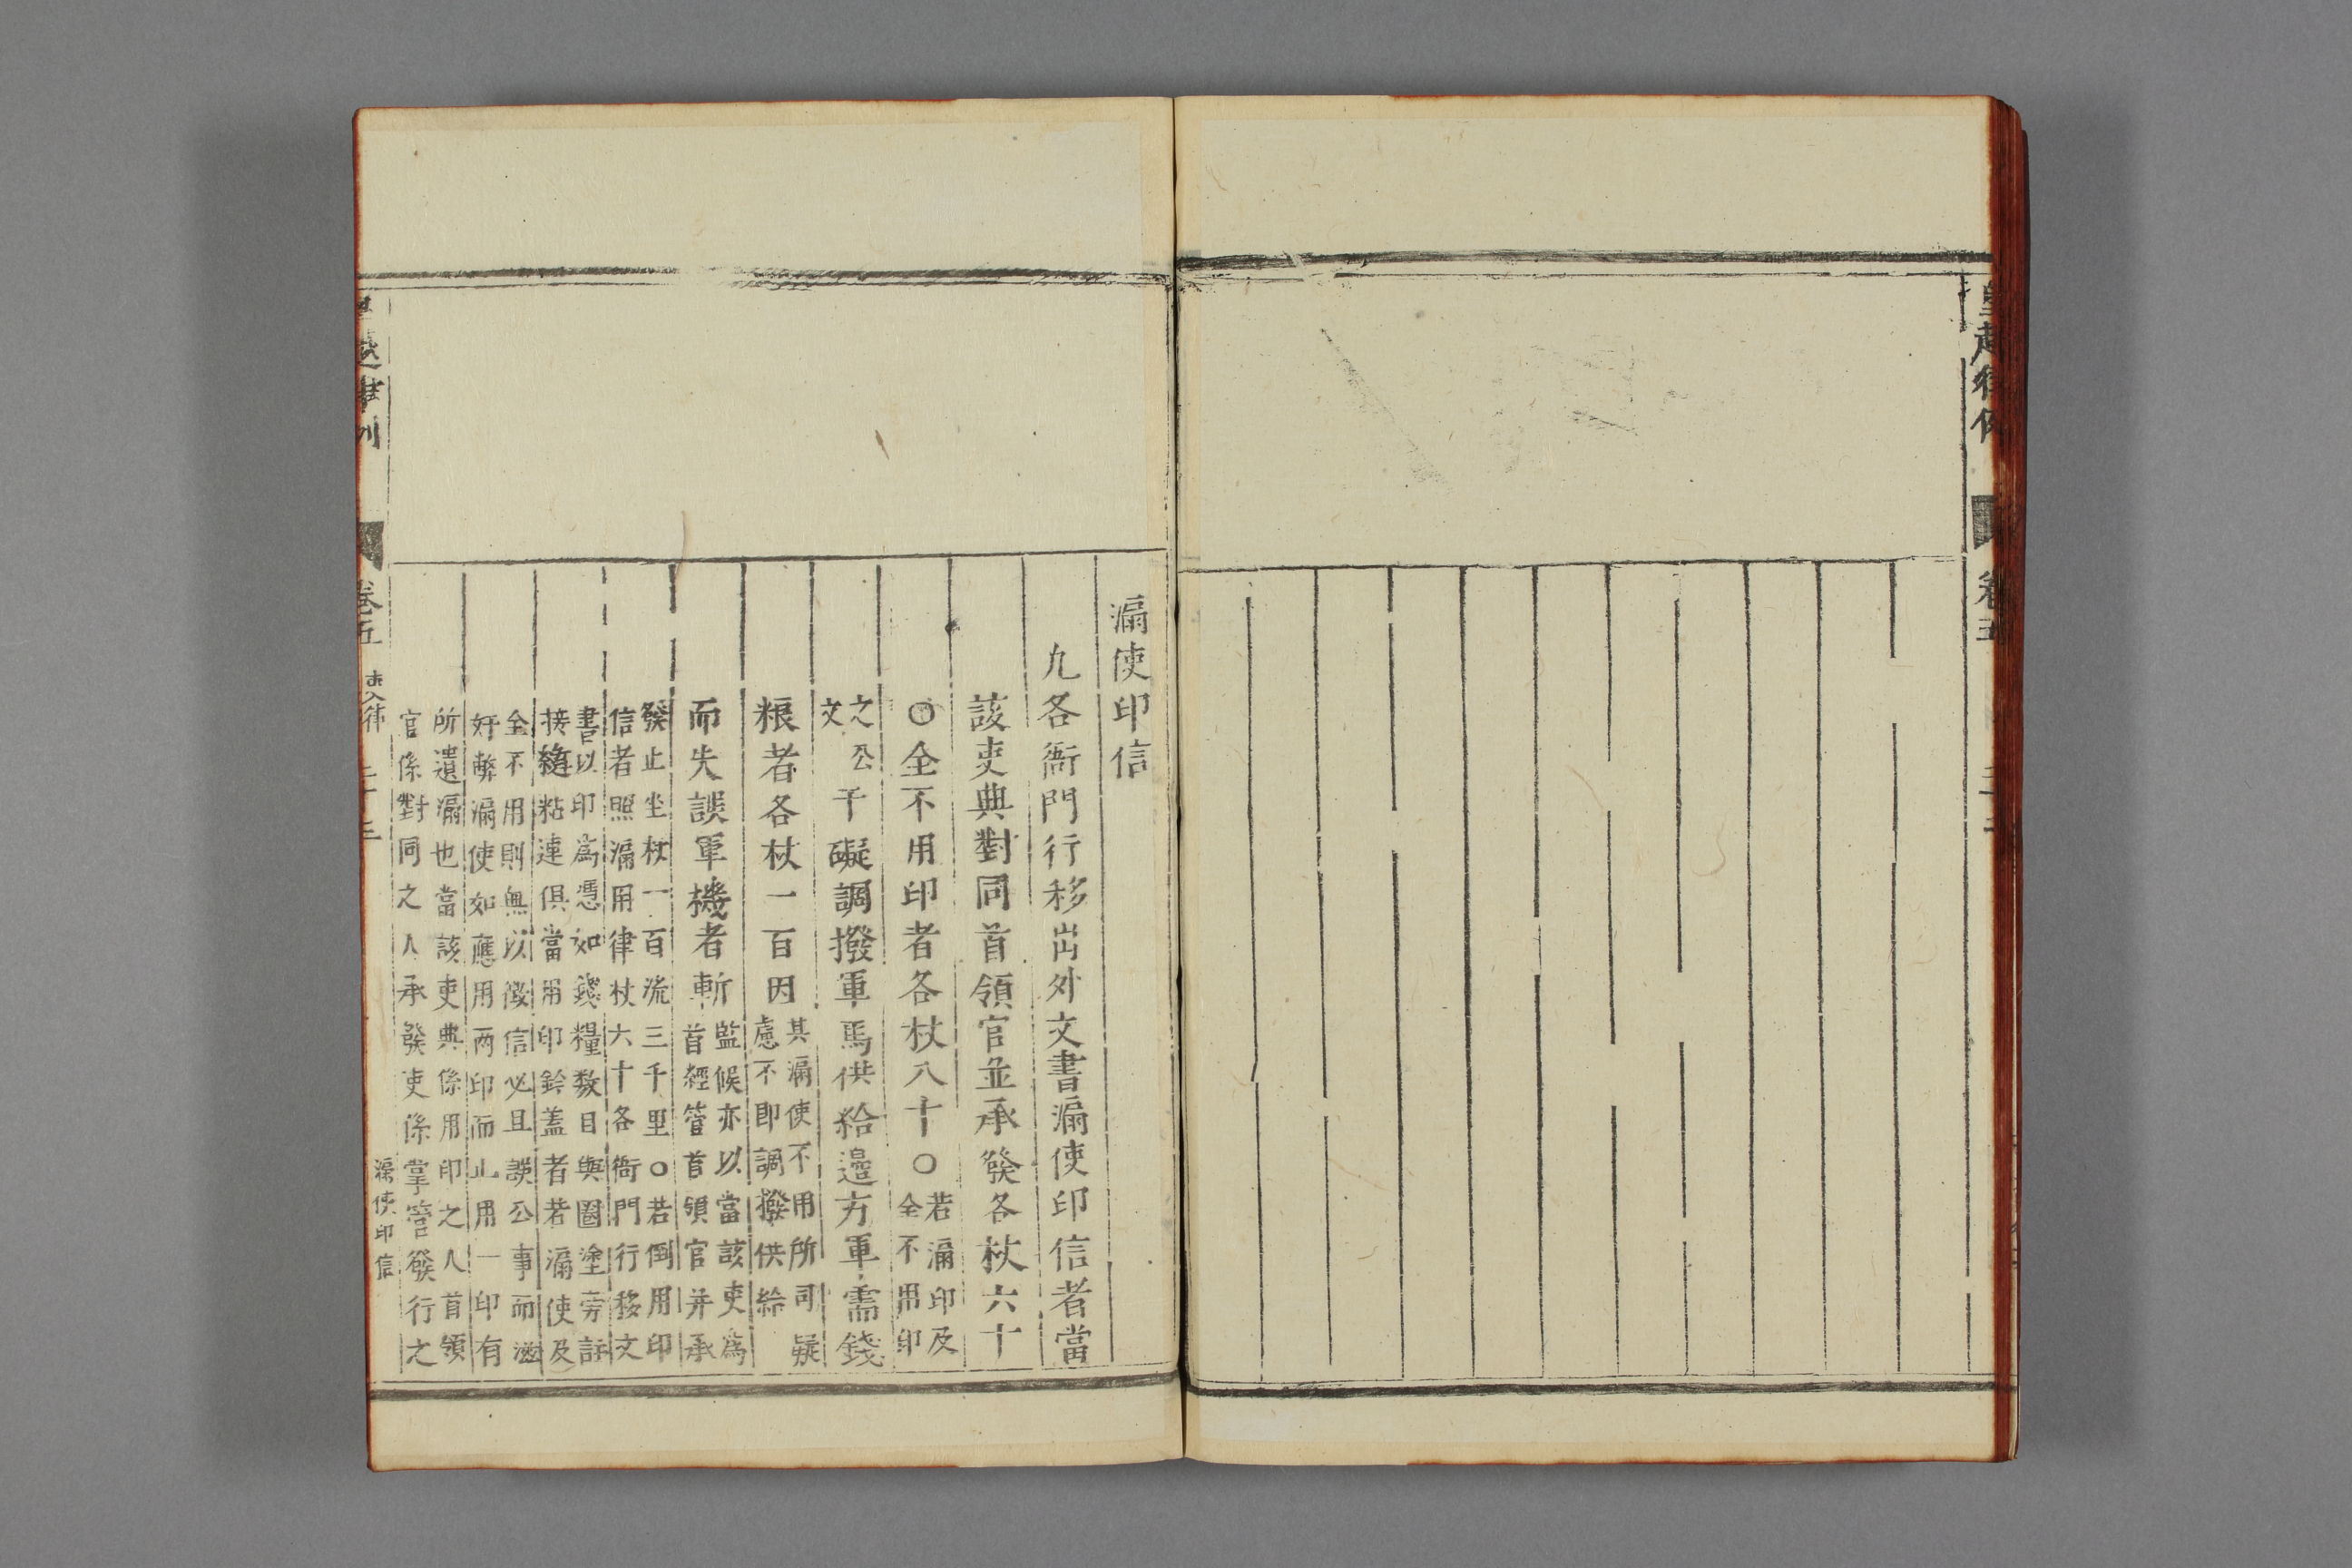 卷五
漏使印信
凢各衙門行移出外文書漏使印信者當
該吏典對同首領官並承發各杖六十
○全不用印者各杖八十○若漏印及
全不用印
之公
文干礙調撥軍馬供給邊方軍需錢
粮者各杖一百因其漏使不用所司疑
慮不即調撥供給
而失誤軍機者斬監候亦以當該吏爲
首經管首領官并承
發止坐杖一百流三千里○若倒用印
信者照漏用律杖六十各衙門行移文
書以印爲憑如錢糧数目與圈塗旁註
接縫粘連俱當用印鈐蓋者若漏使及
全不用則無以徵信必且誤公事而滋
奸弊漏使如應用两印而止用一印有
所遺漏也當該吏典係用印之人首領
官係對同之人承發吏係掌管發行之
卷五 吏律 二十三
漏使印信